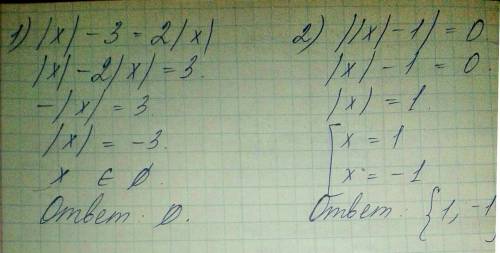 1) |x| - 3 = 2|x|
|x| - 2|x| = 3.
-|x| = 3
|x| = -3.
x ∈ ∅.
Ответ: ∅.
2) ||x| - 1| = 0
|x| - 1 = 0.
|x| = 1.
[ x = 1
x = -1
Ответ. {1, -1}